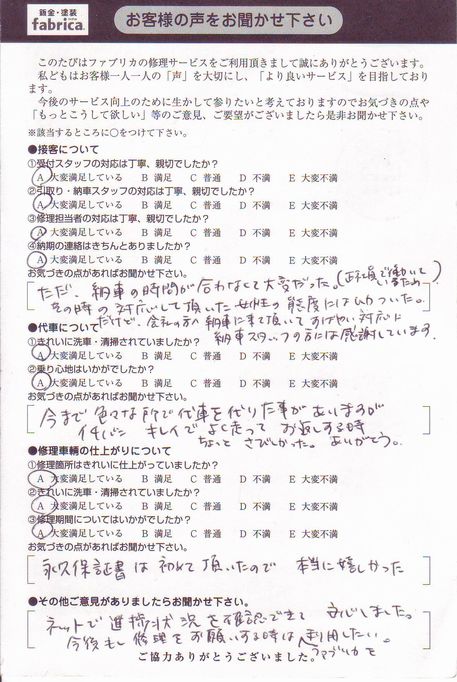 鈑金・塗装
fabrica.
お客様の声をお聞かせ下さい
このたびはファブリカの修理サービスをご利用頂きまして誠にありがとうございます。
私どもはお客様一人一人の「声」を大切にし、「より良いサービス」を目指しており
ます。
今後のサービス向上のために生かして参りたいと考えておりますのでお気づきの点や
「もっとこうして欲しい」等のご意見、ご要望がございましたら是非お聞かせ下さい。
※該当するところに○をつけて下さい。
●接客について
①受付スタッフの対応は丁寧、親切でしたか？
A 大変満足している B 満足 C 普通 D 不満 E 大変不満
②引取り・納車スタッフの対応は丁寧、親切でしたか？
A 大変満足している B 満足 C 普通 D 不満 E 大変不満
③修理担当者の対応は丁寧、親切でしたか？
A 大変満足している B 満足 C 普通 D 不満 E 大変不満
④納期の連絡はきちんとありましたか？
A 大変満足している B 満足 C 普通 D 不満 E 大変不満
お気づきの点があればお聞かせ下さい。
ただ、納車の時間が合わなくて大変だった。(正社員で働いているため)
その時の対応して頂いた女性の態度にはムカついた。
だけど、会社の方へ納車に来て頂いてすばやい対応に
納車スタッフの方には感謝しています。
●代車について
①きれいに洗車・清掃されていましたか？
A 大変満足している B 満足 C 普通 D 不満 E 大変不満
②乗り心地はいかがでしたか？
A 大変満足している B 満足 C 普通 D 不満 E 大変不満
お気づきの点があればお聞かせ下さい。
今まで色々な所で代車を代りた事がありますが
イチバン キレイでよく走って お返しする時
ちょっと さびしかった。 ありがとう。
●修理車輌の仕上がりについて
①修理箇所はきれいに仕上がっていましたか？
A 大変満足している B 満足 C 普通 D 不満 E 大変不満
②きれいに洗車・清掃されていましたか？
A 大変満足している B 満足 C 普通 D 不満 E 大変不満
③修理期間についてはいかがでしたか？
A 大変満足している B 満足 C 普通 D 不満 E 大変不満
お気づきの点があればお聞かせ下さい。
永久保証書は初めて頂いたので 本当に嬉しかった
●その他ご意見がありましたらお聞かせ下さい。
ネットで進捗状況を確認できて 安心しました。
今後もし修理をお願いする時は利用したい。
ファブリカを
ご協力ありがとうございました。